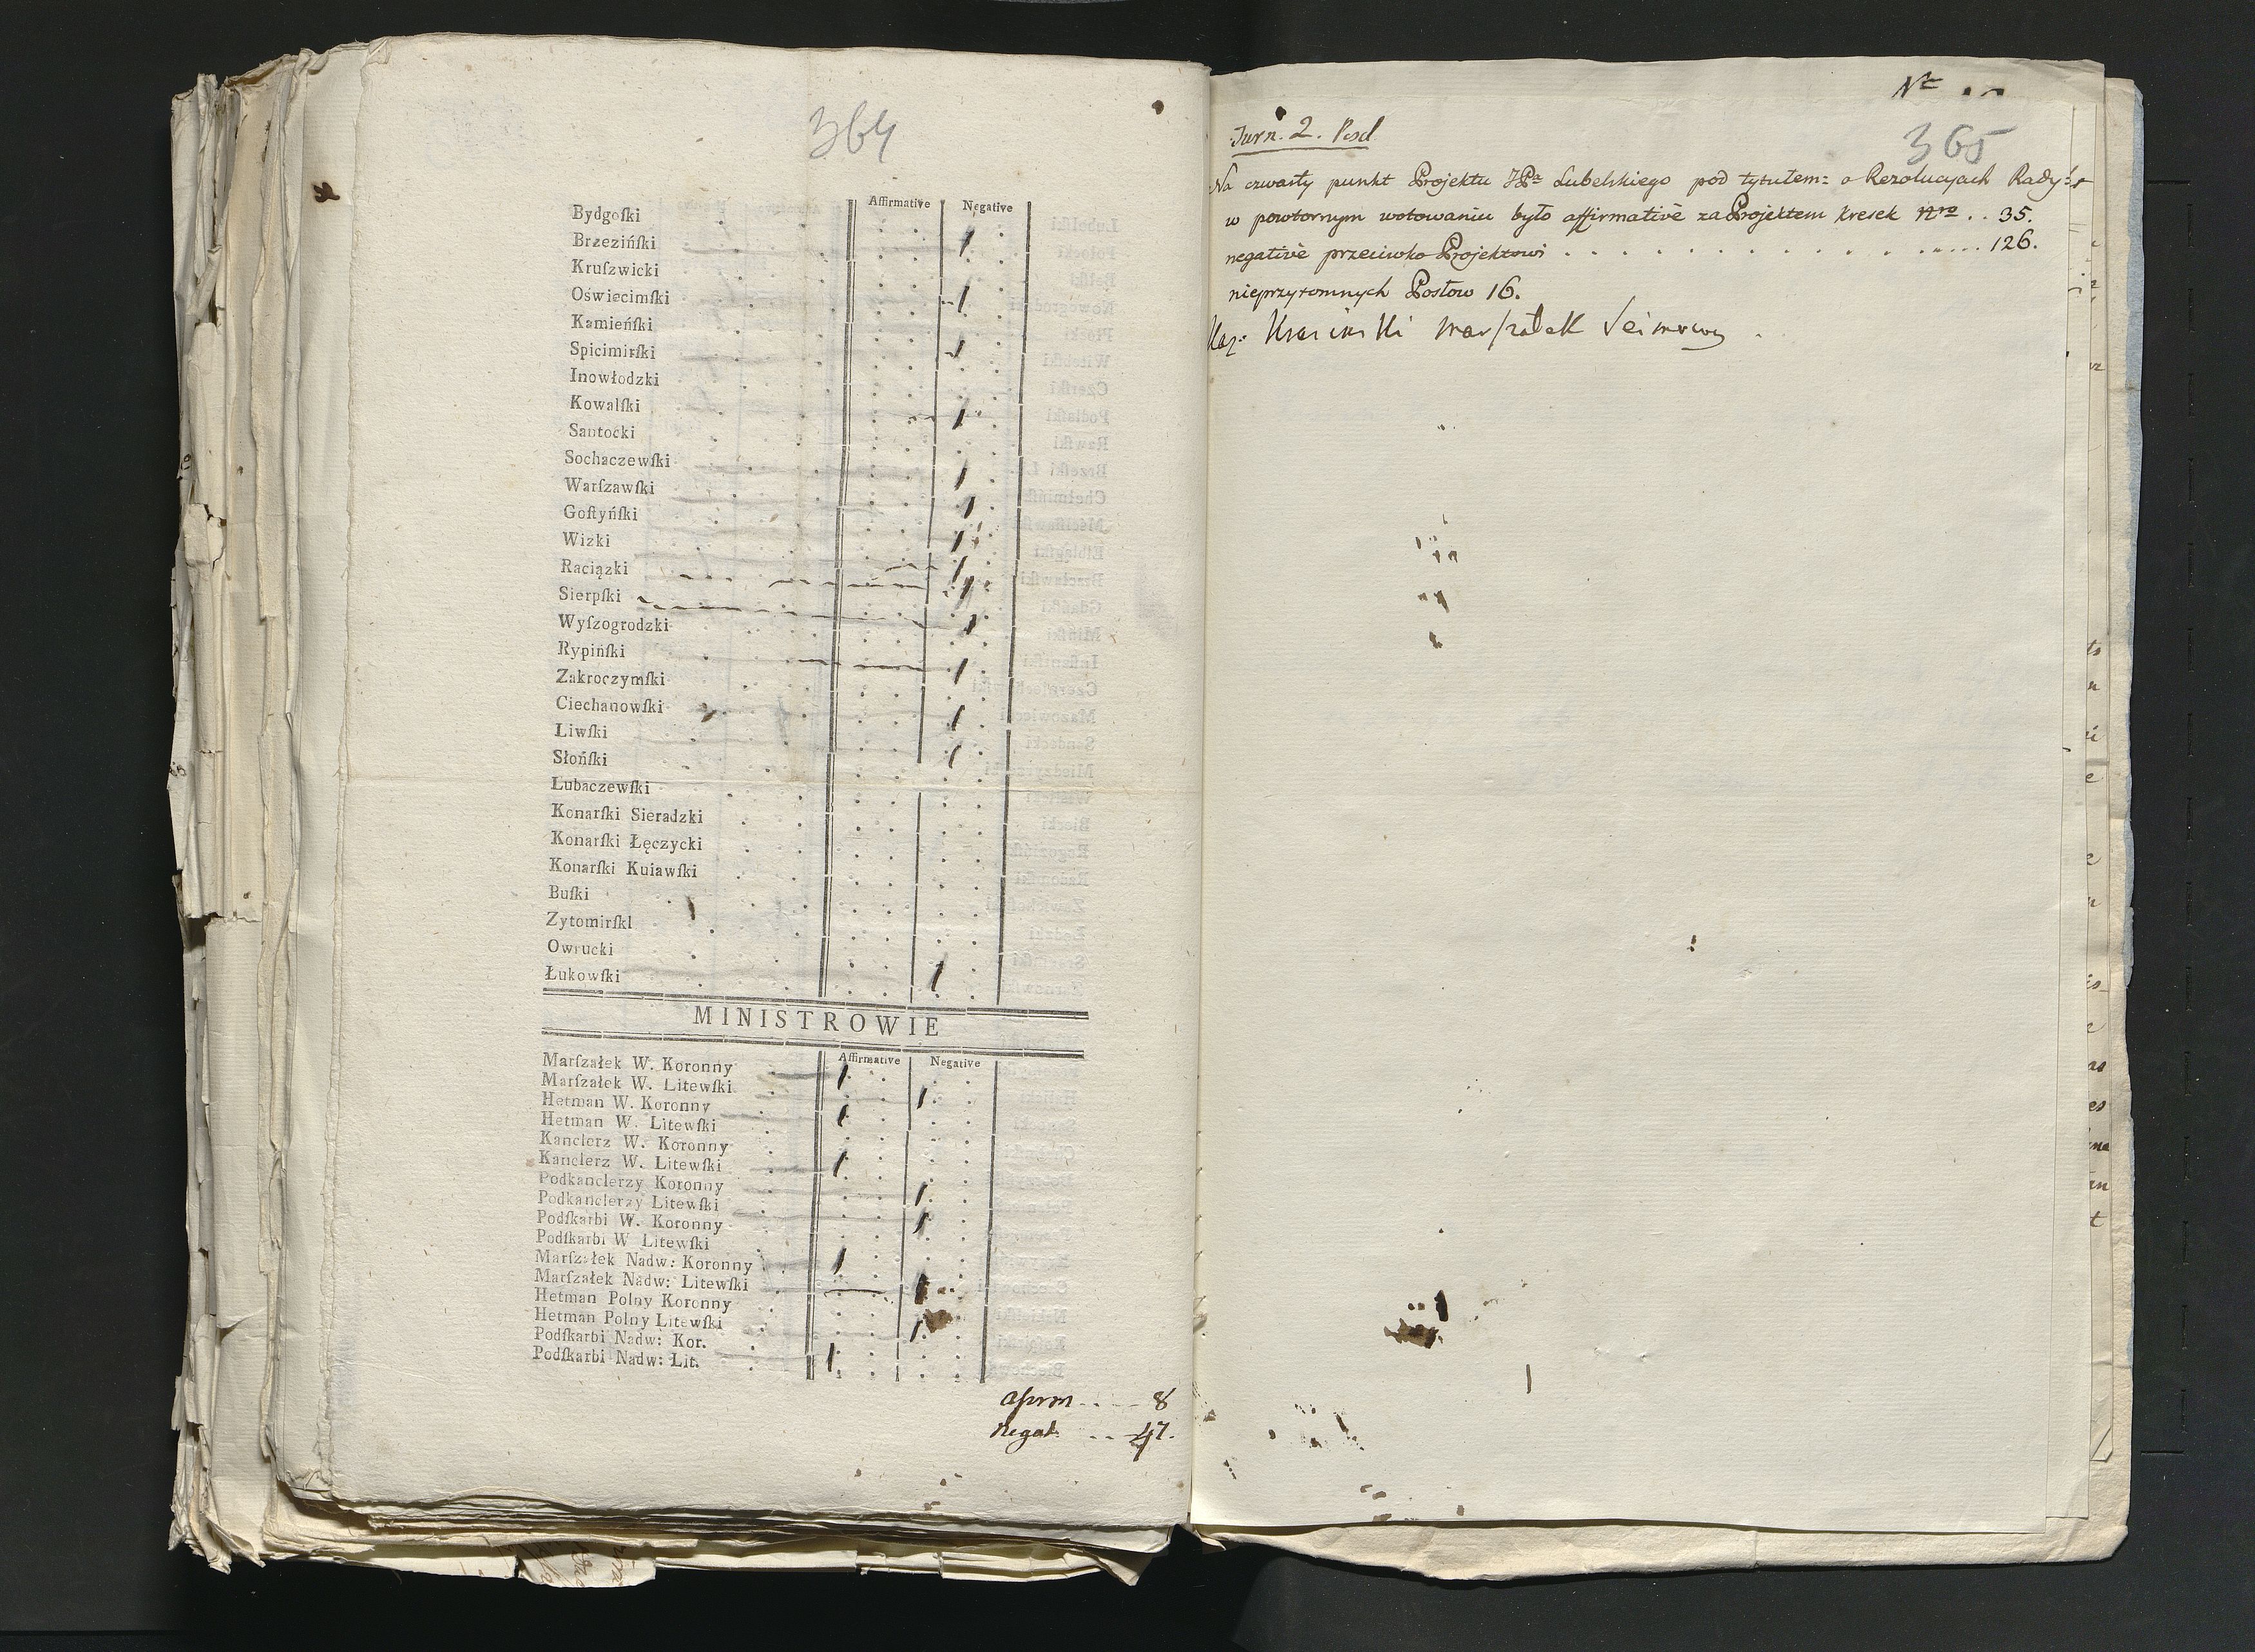 364
Affirmative Negative
Bydgoſki
Brzezińſki
Kruſzwicki
Oświecimſki
Kamieńſki
Spicimirſki
Inowłodzki
Kowalſki
Santocki
Sochaczewſki
Warſzawſki
Goſtyńſki
Wizki
Raciązki
Sierpſki
Wyſzogrodzki
Rypińſki
Zakroczymſki
Ciechanowſki
Liwſki
Słońſki
Lubaczewſki
Konarſki Sieradzki
Konarſki Łęczycki
Konarſki Kuiawſki
Buſki
Zytomirſki
Owrucki
Łukowſki
MINISTROWIE
Affirmative Negative
Marſzałek W. Koronny
Marſzałek W. Litewſki
Hetman W. Koronny
Hetman W. Litewſki
Kanclerz W. Koronny
Kanclerz W. Litewſki
Podkanclerzy Koronny
Podkanclerzy Litewſki
Podſkarbi W. Koronny
Podſkarbi W Litewſki
Marſzałek Nadw: Koronny
Marſzałek Nadw: Litewſki
Hetman Polny Koronny
Hetman Polny Litewſki
Podſkarbi Nadw: Kor.
Podſkarbi Nadw: Lit.
8
Negat. .. 47.
365
Turn. 2.
Na czwarty punkt Projektu JPa Lubelskiego pod tytułem: o Rezolucyach Rady:
w powtornym wotowaniu było affirmativè za Projektem kresek Nro .. 35.
negativè przeciwko Projektowi ..... 126.
nieprzytomnych Posłow 16.
Kaz: Krasinski Marſzałek Seimowy